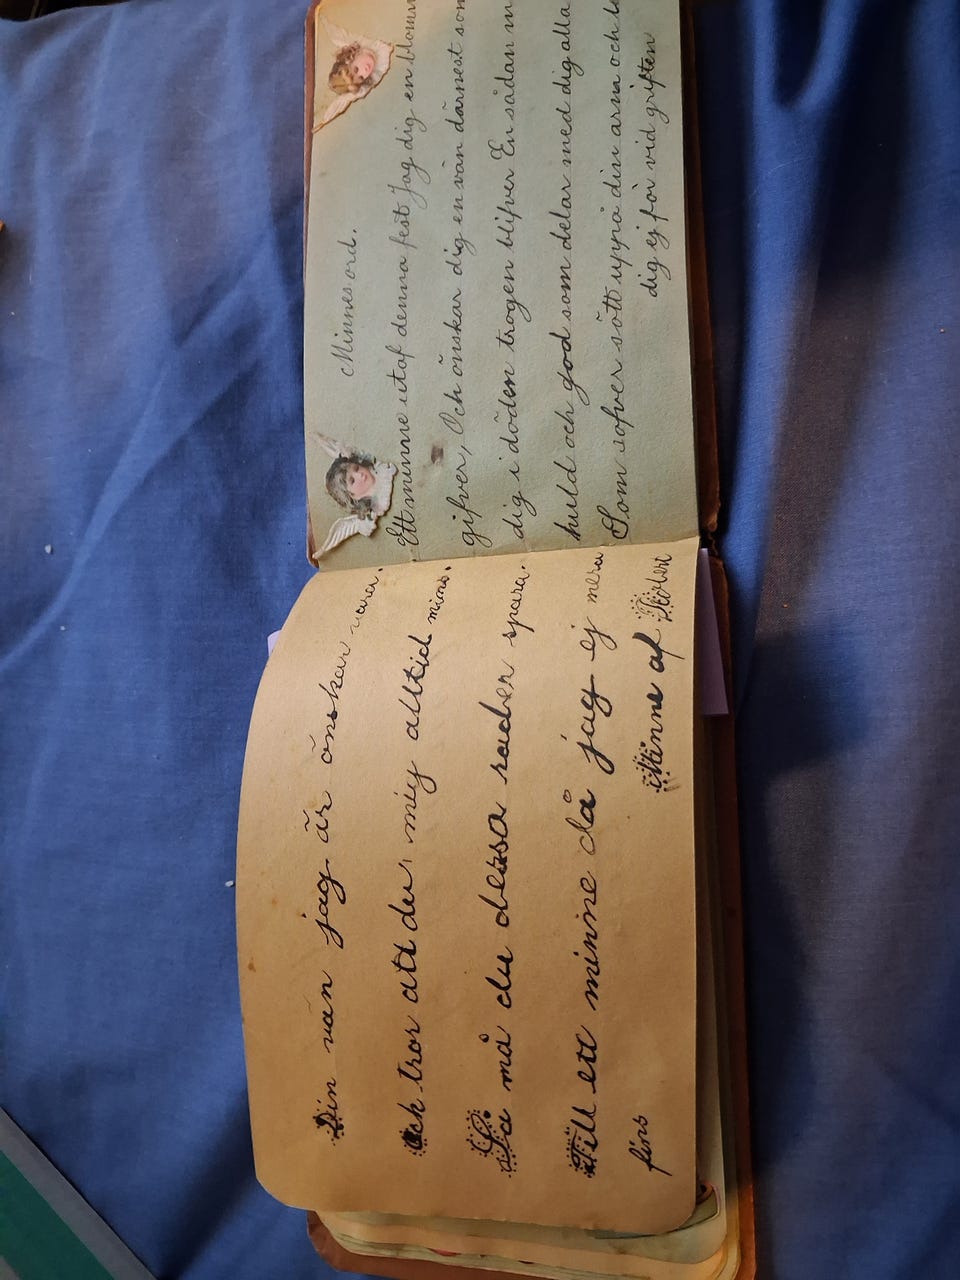 Din vän jag är önskar vara.
Och tror att du mig alltid mins.
Så må du dessa rader spara.
Till ett minne då jag ej mera
fins
Minne af Robert
Minnes ord.
Ett minne utaf denna fest Jag dig en
gifver, Och önskar dig en vän därnest som
dig i döden trogen blifver En sådan
huld och god som delar med dig alla
Som sofver sött uppå din arm och
dig ej för vid griften